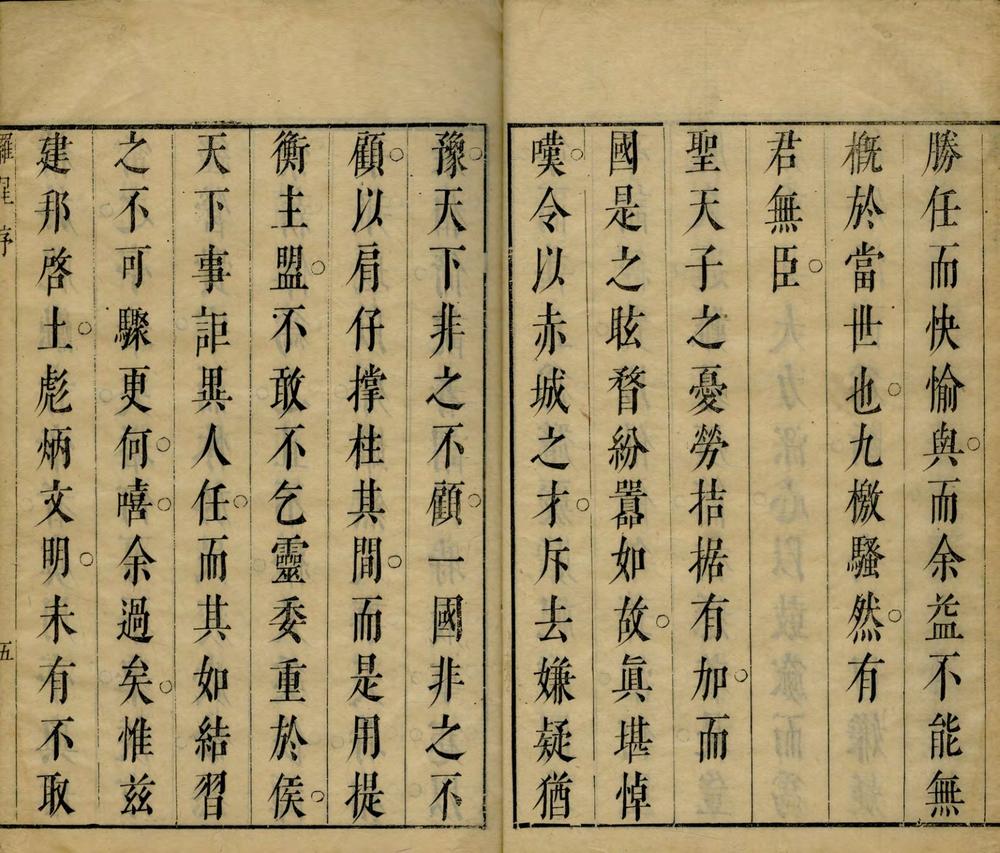 勝任而快愉與而余益不能無
概於當世也九檄騷然有
君無臣
聖天子之憂勞拮据有加而
國是之眩瞀紛囂如故眞堪悼
嘆令以赤城之才斥去嫌疑猶
豫天下非之不顧一國非之不
顧以肩仔撑柱其間而是用提
衡主盟不敢不乞靈委重於侯
天下事詎異人任而其如結習
之不可驟更何嘻余過矣惟兹
建邦啓土彪炳文明未有不取
序
五